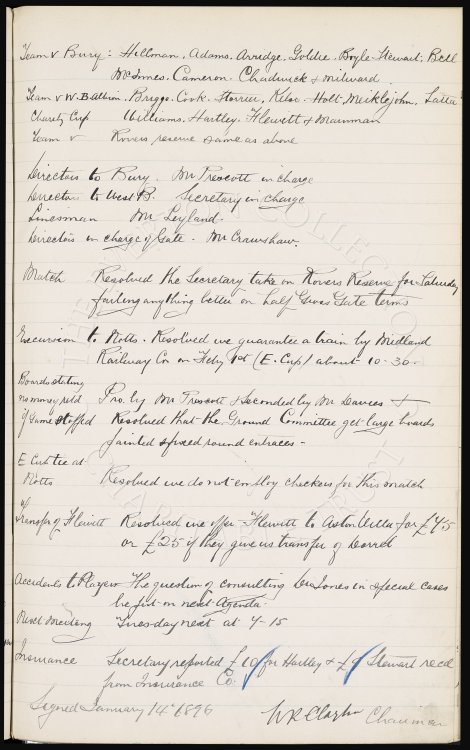 Team v Bury : Hillman. Adams. Arridge. Goldie. Boyle. Stewart. Bell
McInnes. Cameron. Chadwick & Milward.
Team v W. Brom. Briggs. Cook. Storrier. Kelso. Holt. Meiklejohn. Latta
Charity Cup Williams. Hartley. Flewitt &
Team v Rovers reserve same as above
Directors to Bury. Mr Prescott in charge
Directors to West B. Secretary in charge
Linesman Mr Leyland.
Directors in charge of Gate. Mr Crawshaw.
Match Resolved the Secretary take on Rovers Reserve for Saturday
failing anything better on half Gross Gate terms
Excursion to Notts. Resolved we guarantee a train by Midland
Railway Co on Feby 1st (E. Cup) about 10-30.
Boards stating
no money retd Pro. by Mr Prescott & seconded by Mr Davies
if Game stopped Resolved that the Ground Committee get large boards
painted & fixed round entraces -
E Cup tie at
Notts Resolved we do not employ checkers for this match
Transfer of Flewitt Resolved we offer Flewitt to Aston Villa for £75
or £25 if they give us transfer of Dorrel
Accidents to Players The question of consulting Jones in special cases
be put on next Agenda.
Next Meeting Tuesday next at 7-15
Insurance Secretary reported £10 for Hartley & Stewart recd
from Insurance Co.
Signed January 14th 1896 Chairman
THE EVERTON COLLECTION